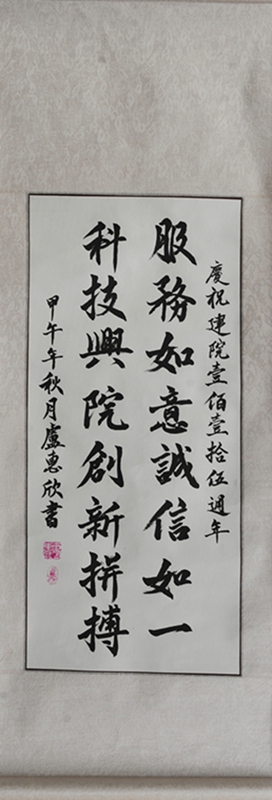 慶祝建院壹佰壹拾伍週年
服務如意誠信如一
科技興院創新拼搏
甲午年秋月盧惠欣書